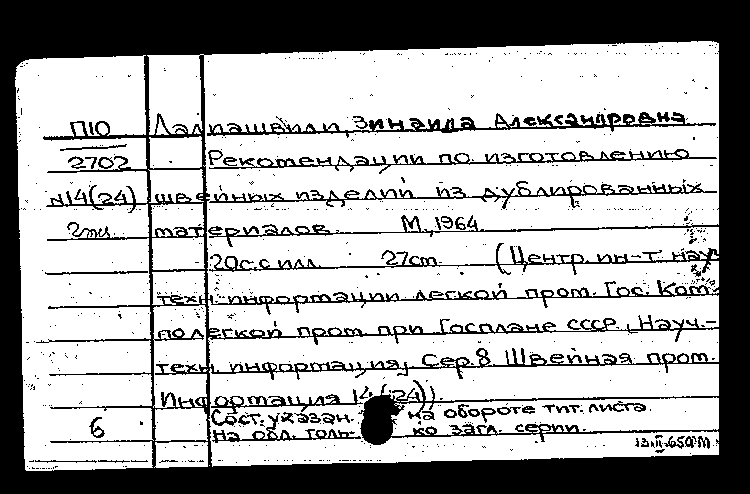 П10 Лалиашвили, Зинаида Александровна
2702 Рекомендации по изготовлению
N14(24) швейных изделий из дублированных
2 экз. материалов. М., 1964
20с. с илл. 27см. (Центр. ин-т науч.-
техн. информации легкой пром. Гос. Ком-
по легкой пром. при Госплане СССР, Науч.-
техн. информация, Сер. 8 Швейная пром.
Информация 14(24)).
Сост. указан. на обороте тит. листа.
6 На обл. толь- ко загл. серии.
13.II.65г.